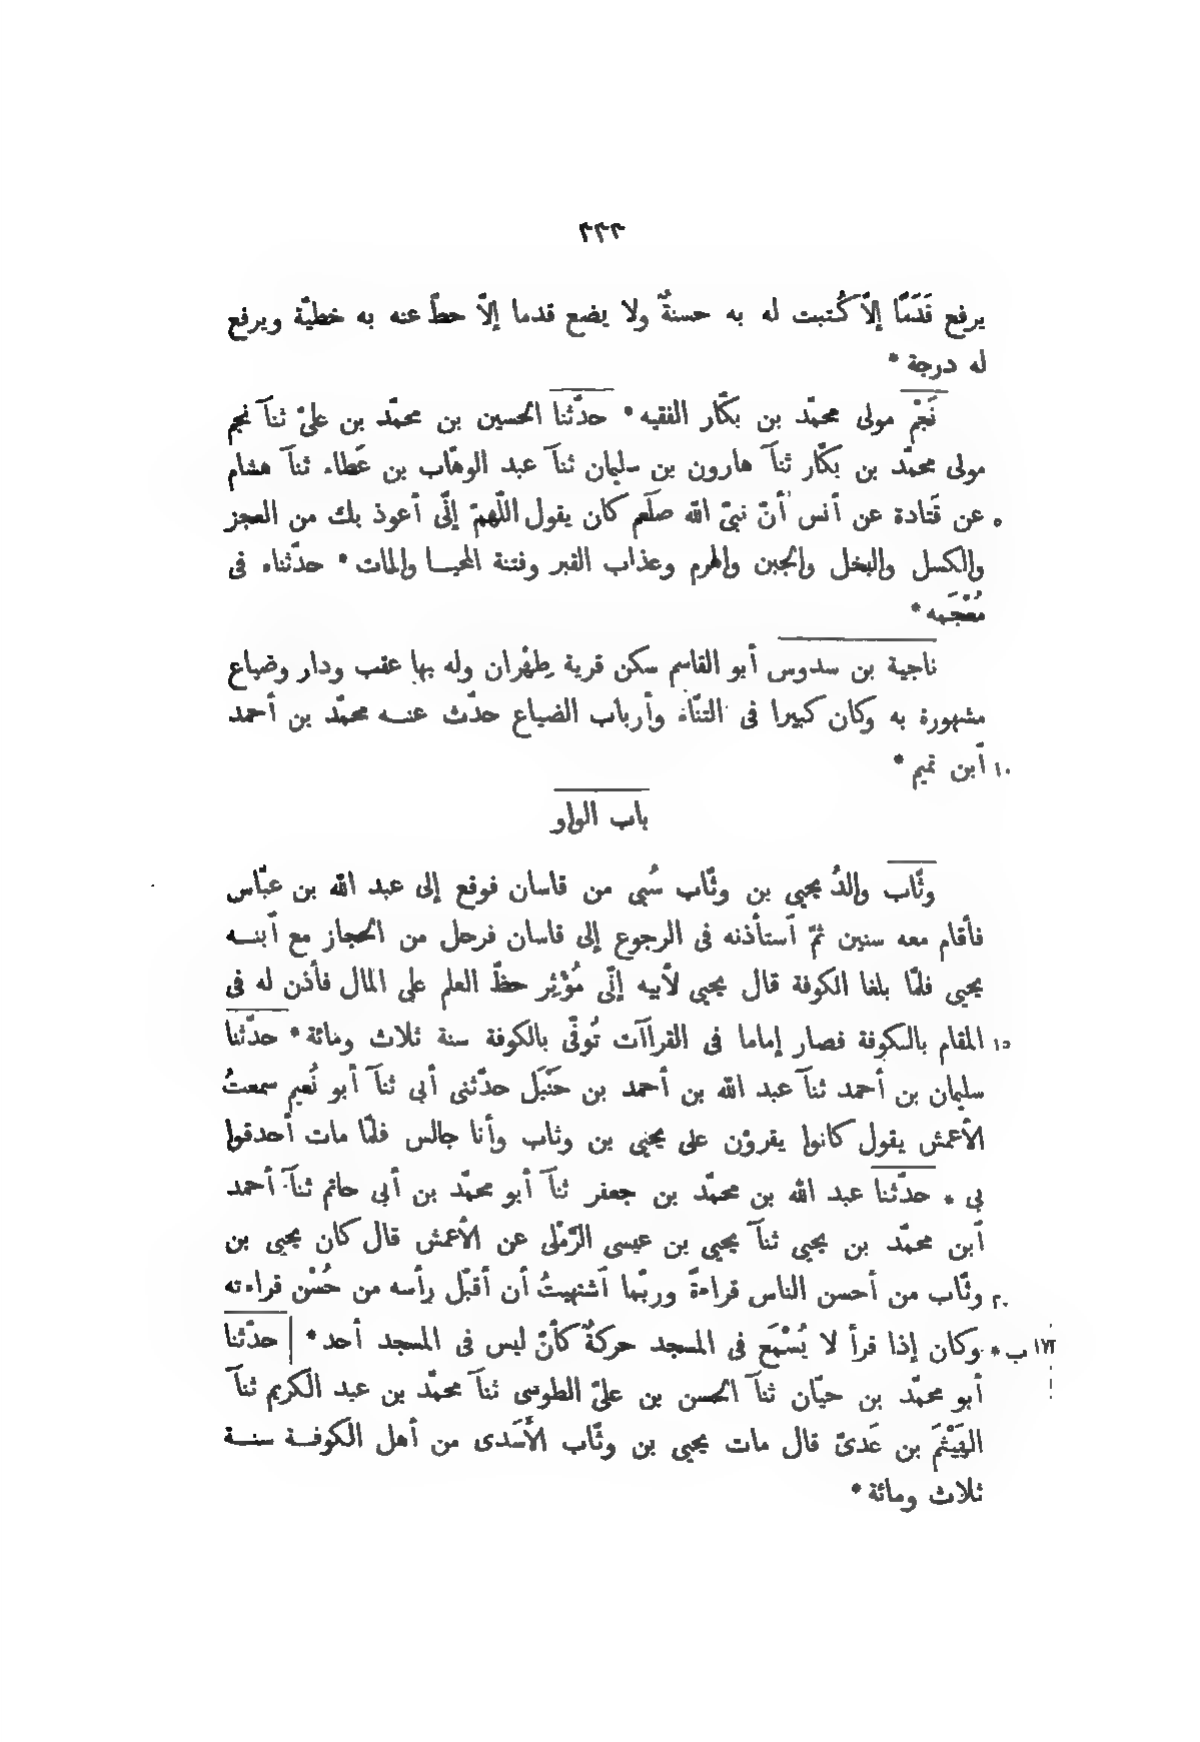 ٣٣٣
يرفع قَدَمًا إلّا كُتبت له به حسنةٌ ولا يضع قدما إلّا حطّ عنه به خطيّة ويرفع
له درجة *
نَجْم مولى محمّد بن بكّار الفقيه * حدّثنا الحسين بن محمّد بن علىّ ثنآ نجم
مولى محمّد بن بكّار ثنآ هارون بن سليمان ثنآ عبد الوهّاب بن عَطاء ثنآ هشام
٥ عن قَتادة عن أنس أنّ نبىّ الله صلَعم كان يقول اللّهمّ إنّى أعوذ بك من العجز
والكسل والبخل والجبن والهرم وعذاب القبر وفتنة المحيا والمات * حدّثناه فى
مُعْجَمه *
ناجية بن سدوس أبو القاسم سكن قرية طِهْران وله بها عقب ودار وضياع
مشهورة به وكان كبيرا فى التنّاء وأرباب الضياع حدّث عنه محمّد بن أحمد
١٠ آبن تميم *
باب الواو
وثّاب والدُ يحيى بن وثّاب سُبى من قاسان فوقع إلى عبد الله بن عبّاس
فأقام معه سنين ثمّ آستأذنه فى الرجوع إلى قاسان فرحل من الحجاز مع آبنه
يحيى فلمّا بلغا الكوفة قال يحيى لأبيه إنّى مُؤْثِر حظّ العلم على المال فأذن له فى
١٥ المقام بالكوفة فصار إماما فى القراآت تُوفّى بالكوفة سنة ثلاث ومائة * حدّثنا
سليمان بن أحمد ثنآ عبد الله بن أحمد بن حَنْبَل حدّثنى أبى ثنآ أبو نُعيم سمعتُ
الأعمش يقول كانوا يقرؤن على يحيى بن وثاب وأنا جالس فلمّا مات أحدقوا
بى * حدّثنا عبد الله بن محمّد بن جعفر ثنآ أبو محمّد بن أبى حاتم ثنآ أحمد
آبن محمّد بن يحيى ثنآ يحيى بن عيسى الرّمْلى عن الأعمش قال كان يحيى بن
٢٠ وثّاب من أحسن الناس قراءةً وربّما آشتهيتُ أن أقبّل رأسه من حُسْن قراءته
١٧٣ ب * وكان إذا قرأ لا يُسْمَع فى المسجد حركةٌ كأنّ ليس فى المسجد أحد * | حدّثنا
أبو محمّد بن حيّان ثنآ الحسن بن علىّ الطوسى ثنآ محمّد بن عبد الكريم ثنآ
الهَيْثَم بن عَدىّ قال مات يحيى بن وثّاب الأَسَدى من أهل الكوفة سنة
ثلاث ومائة *